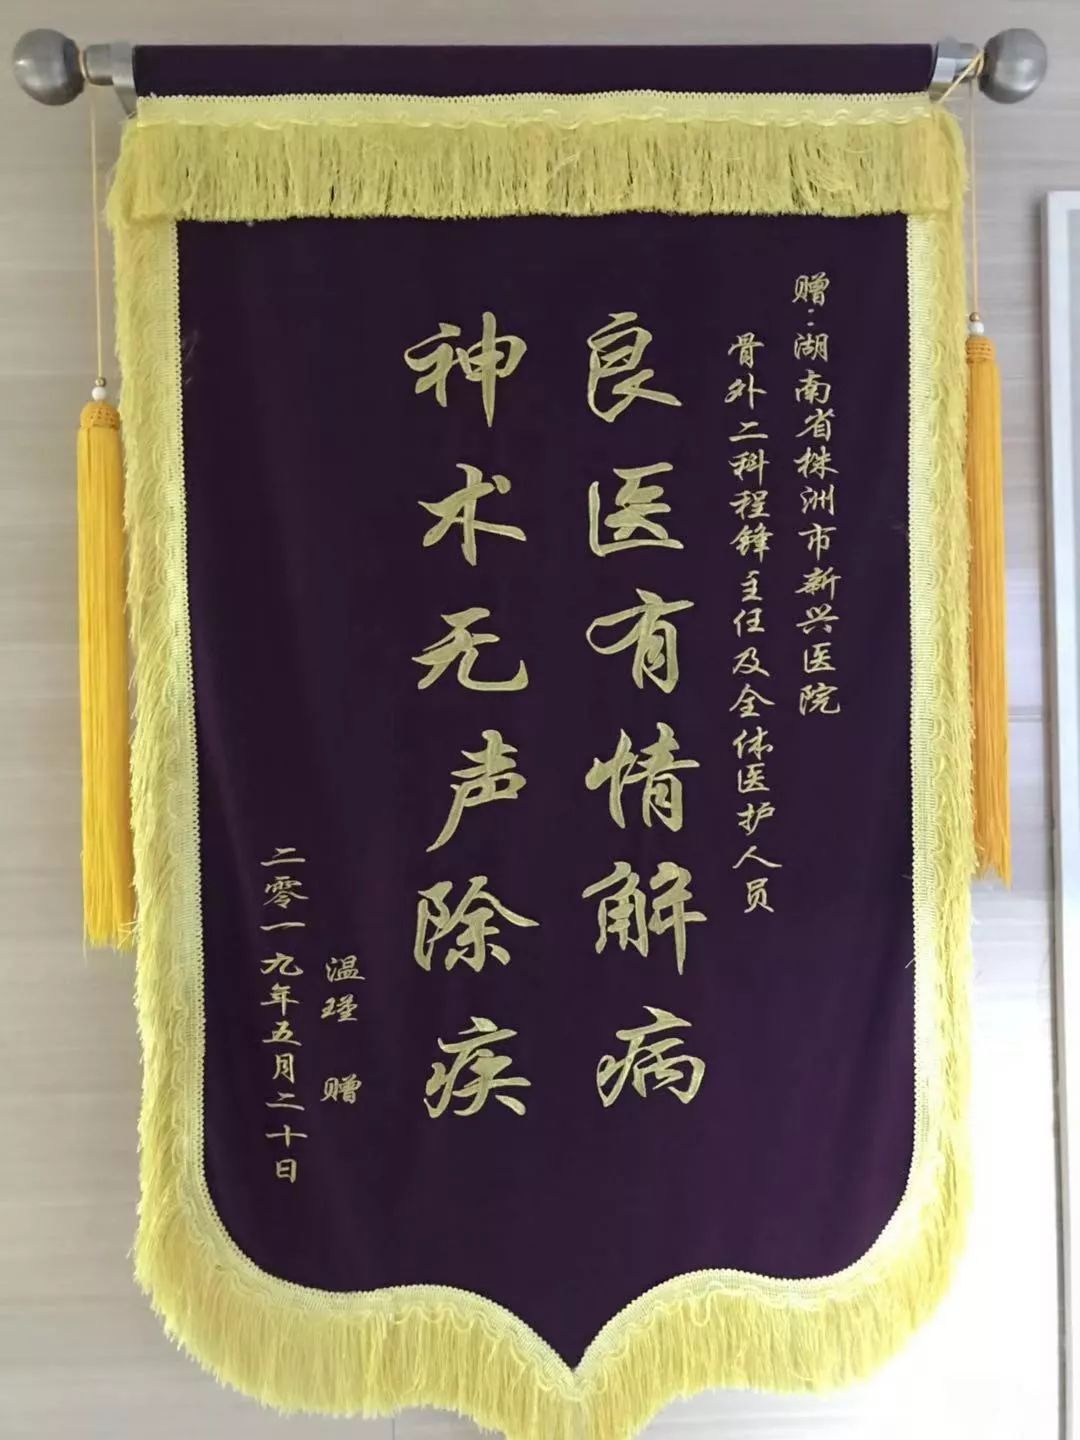 赠:湖南省株洲市新兴医院
骨外二科程锋主任及全体医护人员
良医有情解病
神术无声除疾
温瑾 赠
二零一九年五月二十日